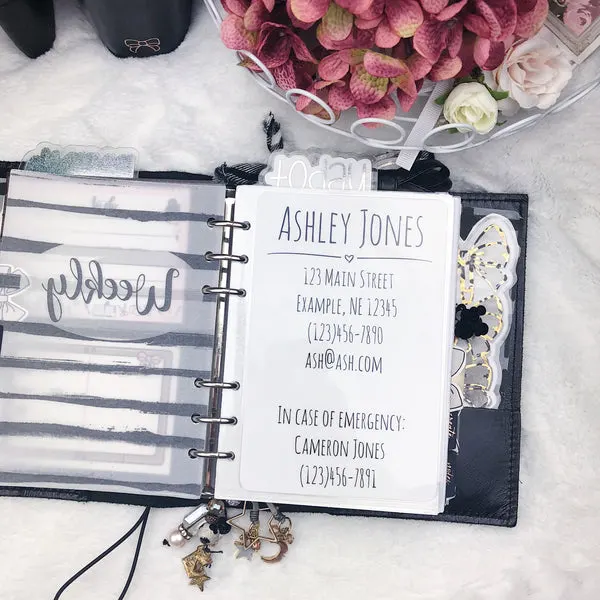 today
Weekly
ASHLEY JONES
123 MAIN STREET
EXAMPLE, NE 12345
(123)456-7890
ASH@ASH.COM
IN CASE OF EMERGENCY:
CAMERON JONES
(123)456-7891